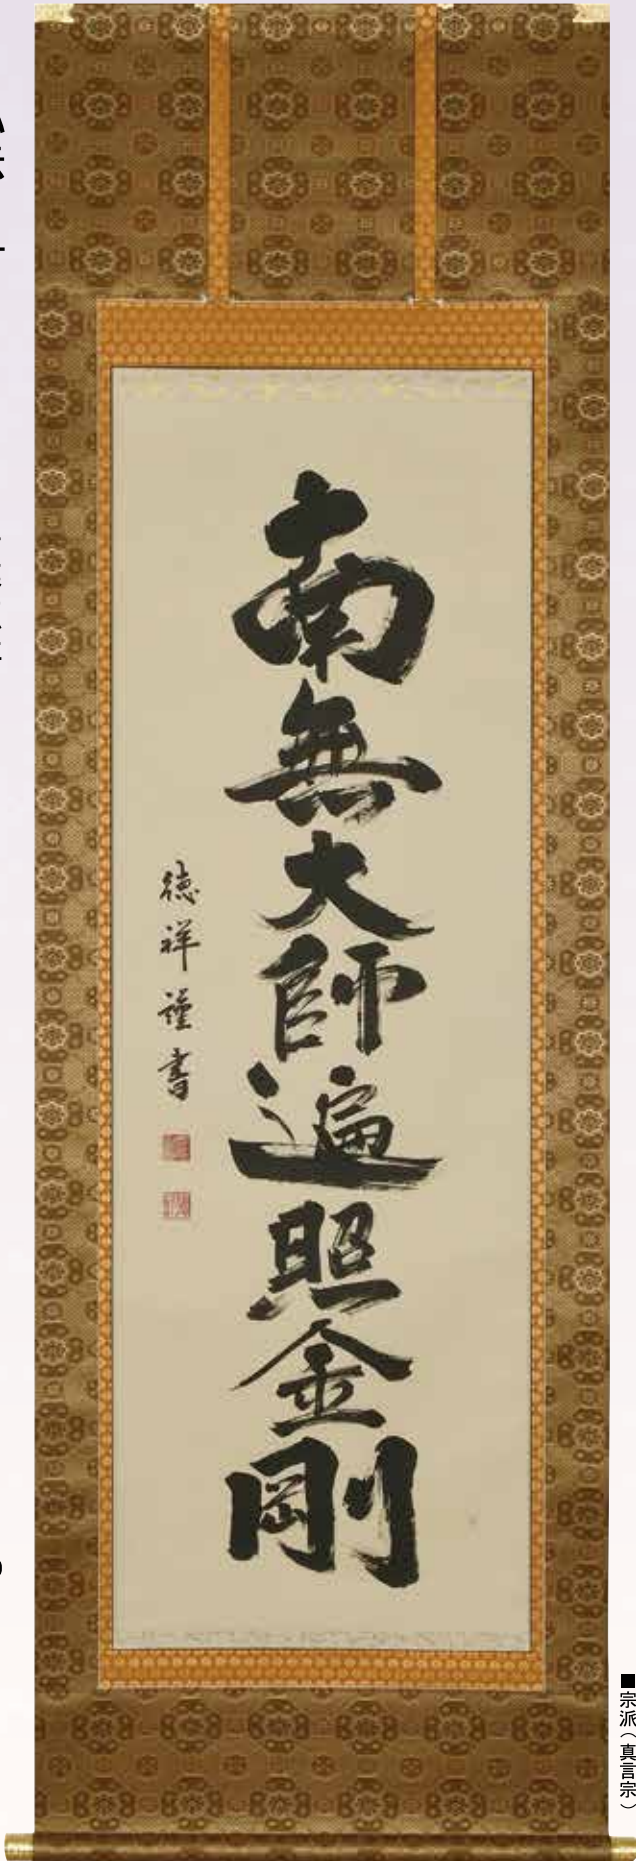 南無大師遍照金剛
徳祥謹書
■宗派（真言宗）